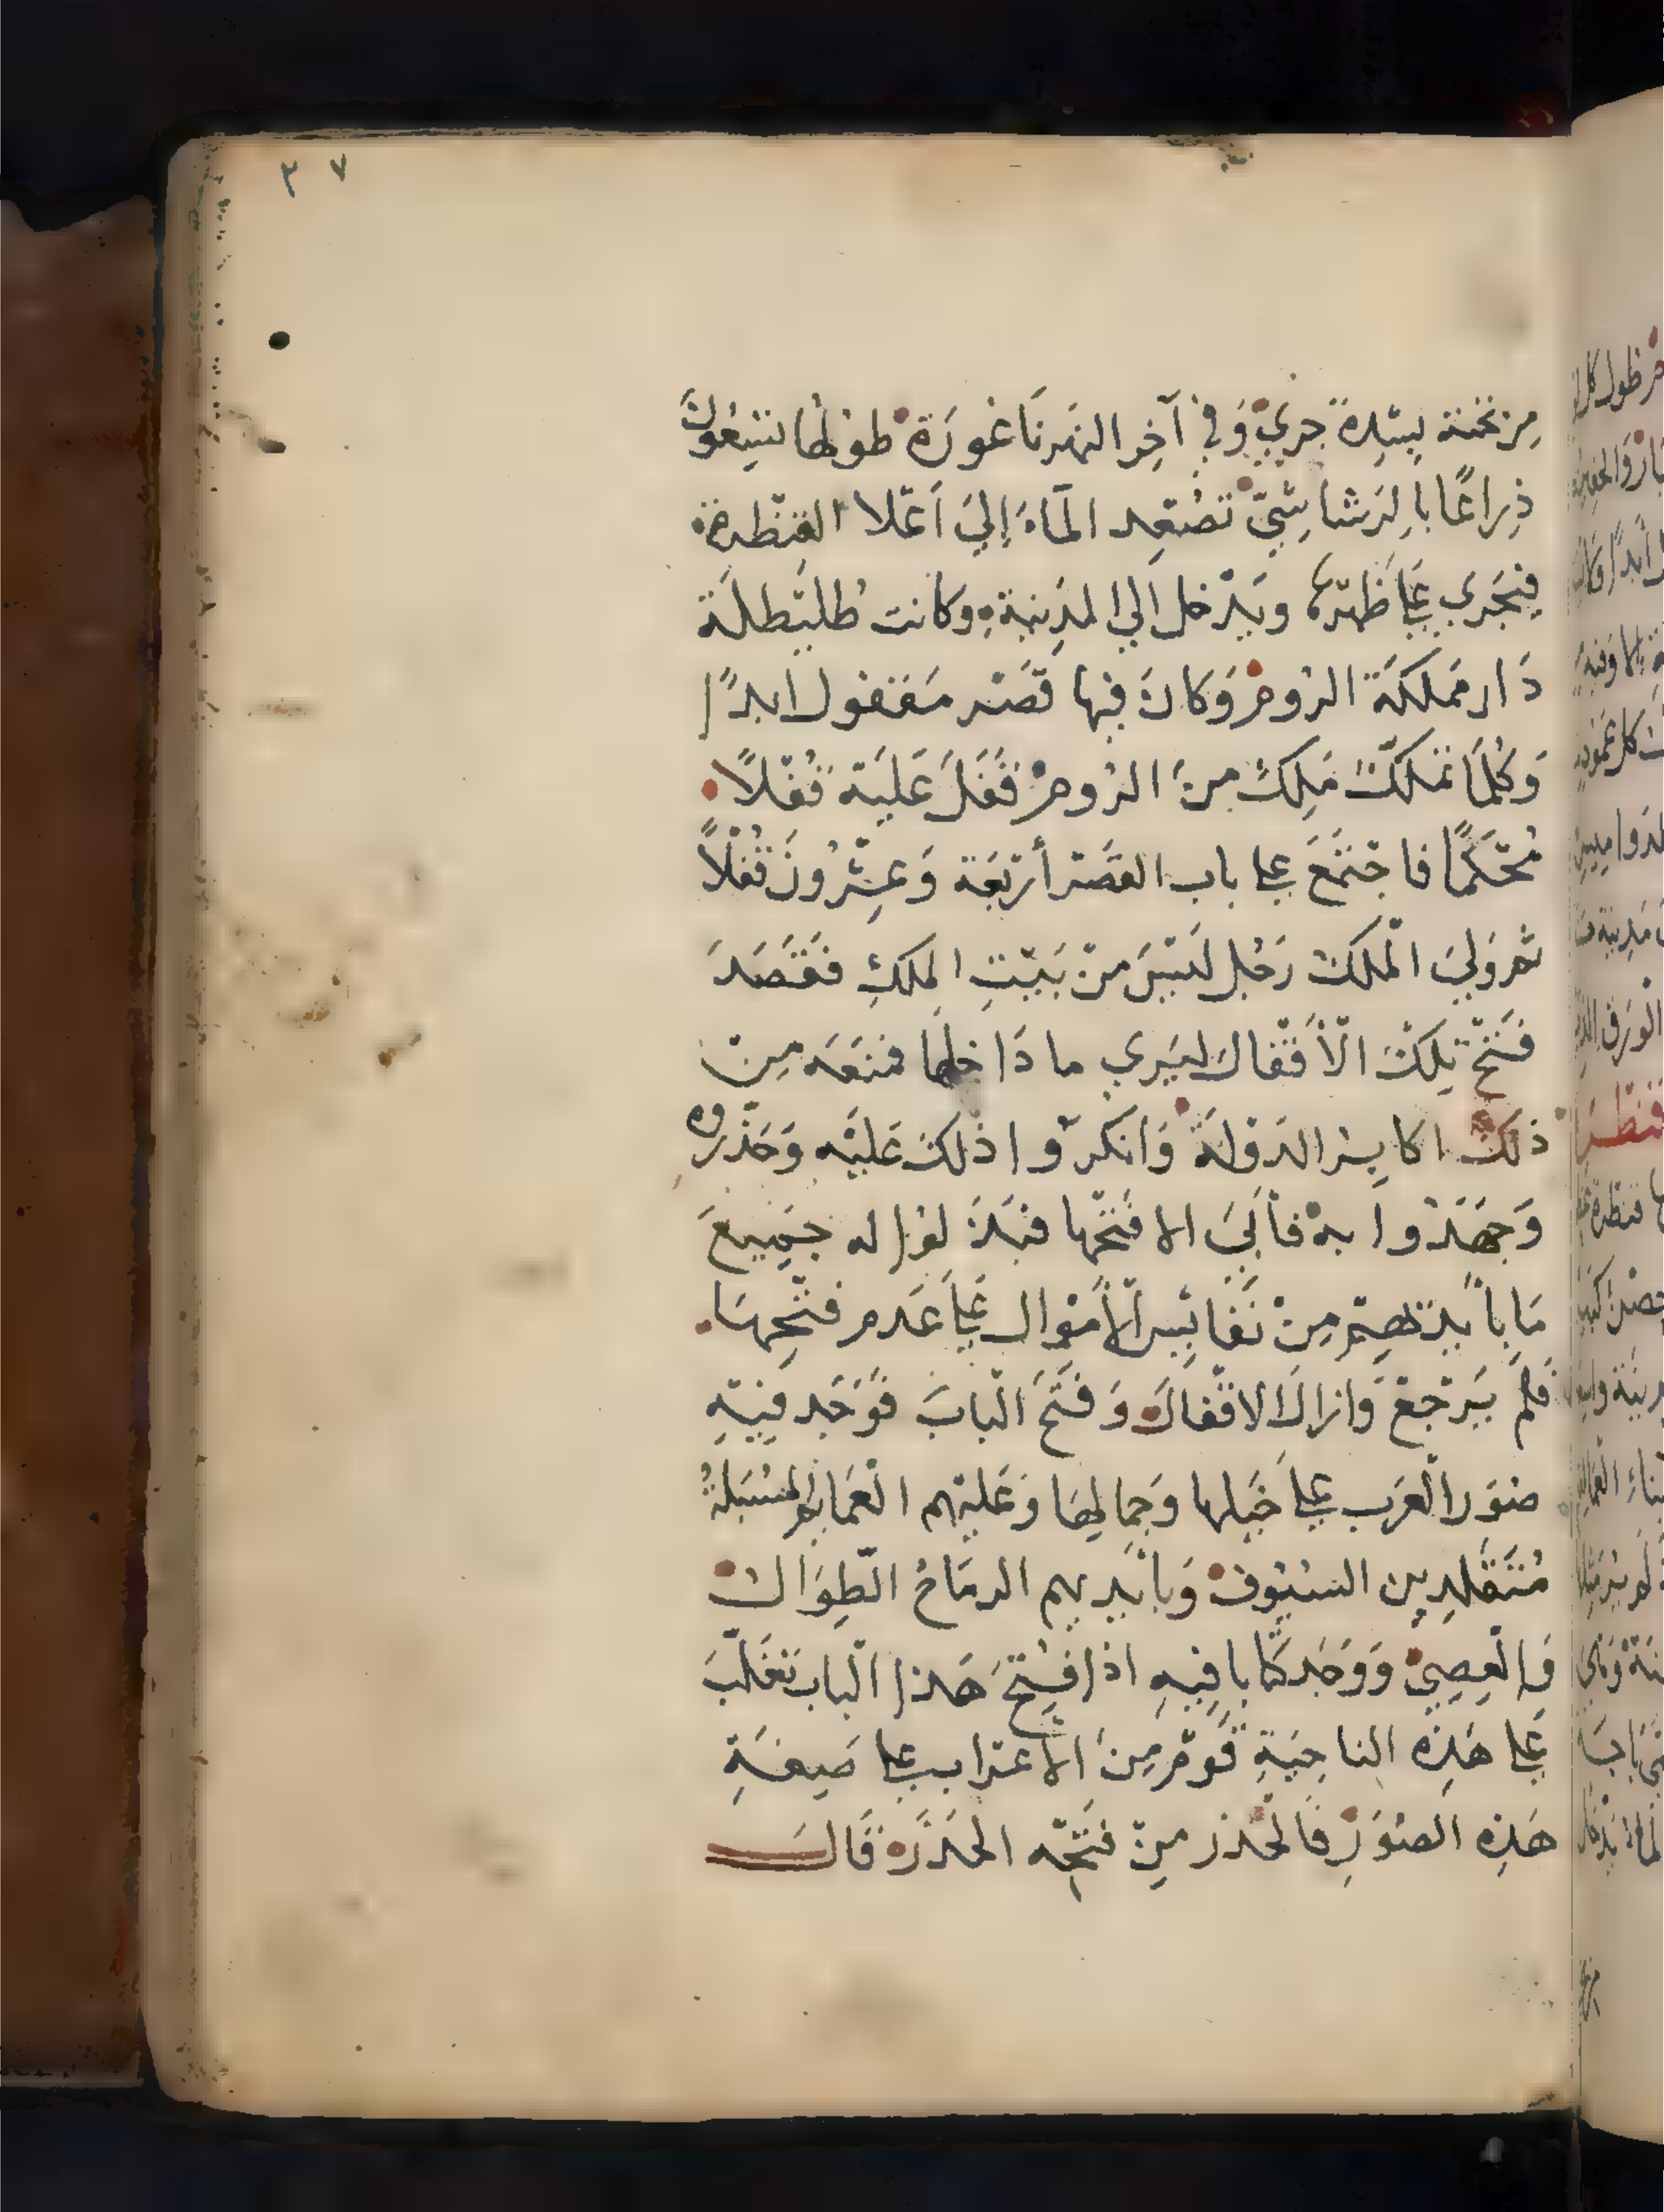 ٣٧
مِن تحته بشِدة جريٍ وَفي آخِر النهر نَاعُورَة طولها تسعُونَ
ذِراعًا بالرشاشيّ تصْعِد المآءَ إليَ أعْلا القنْطرة
فيَجَري عَلي ظهْرهَا ويَدْخل الي المدِينة وكانت طليْطلَة
دَار مَملكَة الرُوم وَكانَ فيها قصْر مَقفول ابدًا
وَكُلمَا تمَلكَ مَلِكٌ مِنَ الرُوم قَفَلَ عَليَه قُفْلاً
مُحْكمًا فاجْتَمَعَ علي باب القصَر أرْبَعَة وَعِشْرُونَ قُفْلاً
ثم وَليَ الملكَ رَجُل ليْسَ مِنْ بَيْتِ الملكِ فقَصَدَ
فَتْحَ تِلكَ الأَقْفال ليَري ما دَاخلها فمنَعَه مِنْ
ذلكَ اكابِر الدَولة وَانكروا ذلكَ عَليْه وَحَذّروه
وَجهَدُوا به فأبَيَ الا فَتْحها فبَذَلوا له جَمِيعَ
مَا بأيدِيهم مِنْ نَفَائِس الأمْوال عَلي عَدم فتْحِهَا
فلمْ يَرْجعْ وَازالَ الاقْفالَ وَفَتَحَ البابَ فوَجَد فِيهِ
صُوَر العَرَب علي خَيلها وَجِمالِهَا وَعَليْهم العَمايم المسْبَلةُ
مُتَقَلدِين السيُوف وَبأيْديهم الرمَاحُ الطِوَالُ
وَالعِصِيّ وَوَجَد كتابا فِيهِ اذا فُتِحَ هَذا البابُ تغَلّبَ
عَلي هَذِه الناحِيَةِ قَومٌ مِنَ الاعْراب علي صِفَةِ
هَذِه الصُوَرِ فالحذر مِنْ فتْحِه الحذَرَ قَالَ